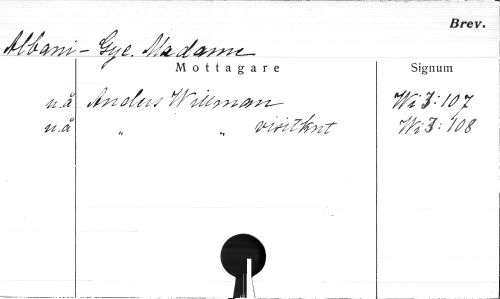 Brev.
Albani - Gye. Madame
Mottagare Signum
u.å Anders Willman Wi 3:107
u.å " " visitkort Wi 3:108